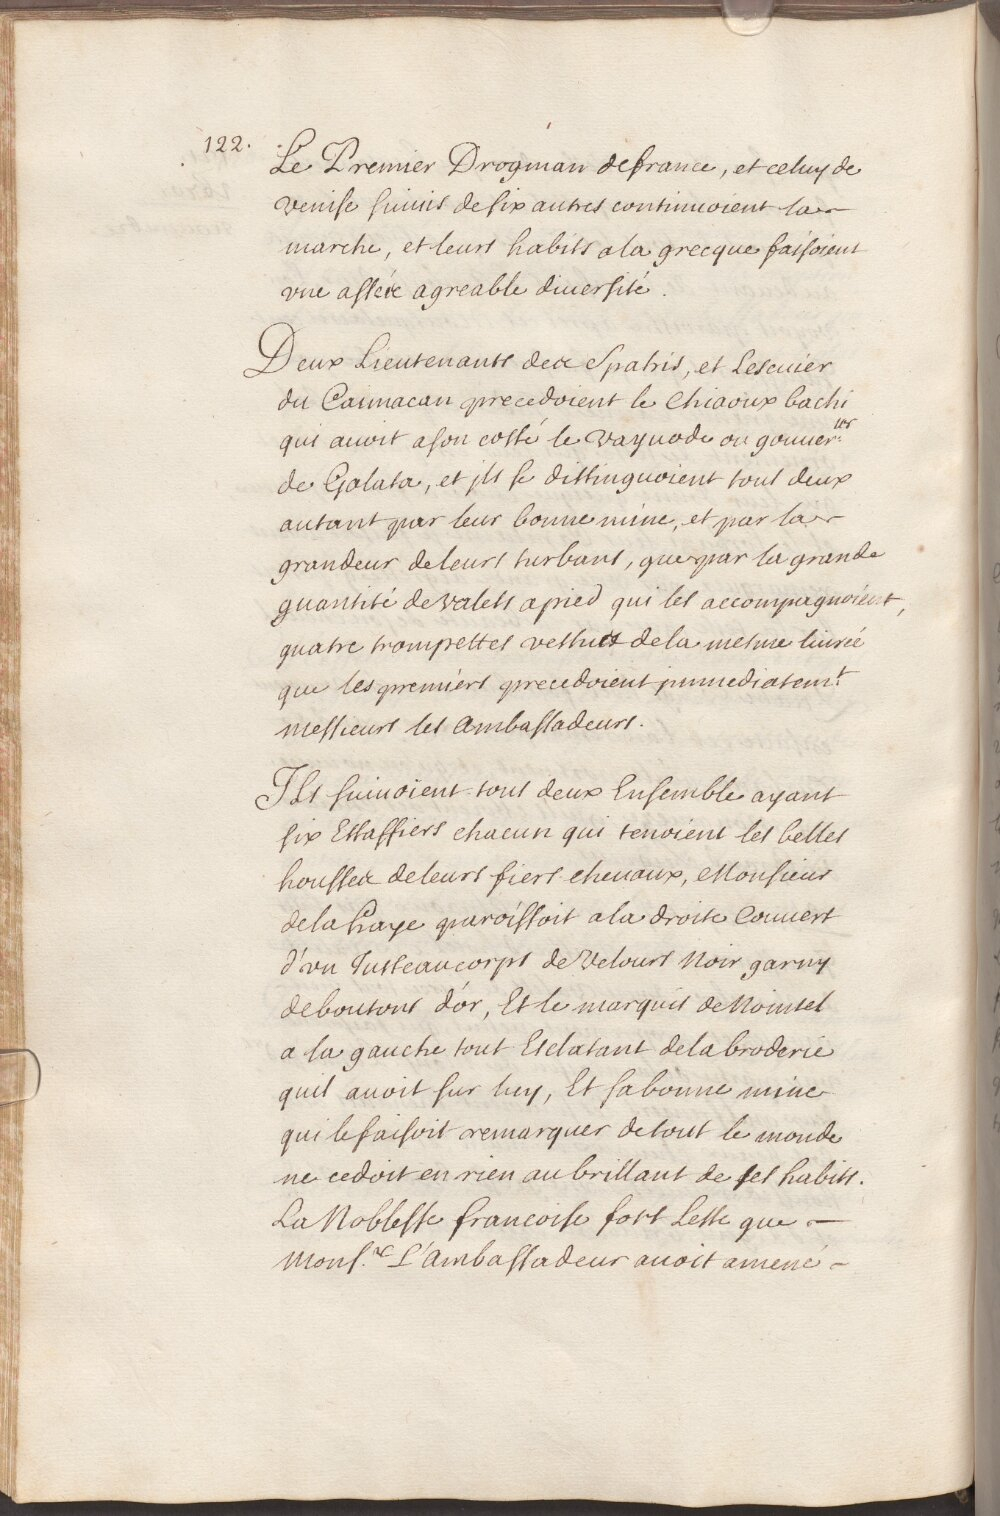 122.
Le Premier Drogman de france, et celuy de
venise suiuis de six autres continuoient la
marche, et leurs habits a la grecque faisoient
vne assée agreable diuersité.
Deux Lieutenants des Spahis, et Lescuier
du Caimacan precedoient le Chiaoux bachi
qui auoit a son costé le Vayuode ou gouuer.^ur
de Galata, et jls se distinguoient tous deux
autant par leur bonne mine, et par la
grandeur de leurs turbans, que par la grande
quantité de valets a pied qui les accompagnoient,
quatre trompettes vestues de la mesme liurée
que les premiers precedoient jmmediatem.^t
messieurs les Ambassadeurs.
Ils suiuoient tous deux Ensemble ayant
six Estaffiers chacun qui tenoient les belles
housses de leurs fiers cheuaux, Monsieur
de la haye paroissoit a la droite Couuert
d'vn Justeaucorps de Velours Noir garny
de boutons d'or, Et le marquis de Nointel
a la gauche tout Esclatant de la broderie
quil auoit sur luy, Et sa bonne mine
qui le faisoit remarquer de tout le monde
ne cedoit en rien au brillant de ses habits.
La Noblesse francoise fort Leste que
Mons.^r L'Ambassadeur auoit amené